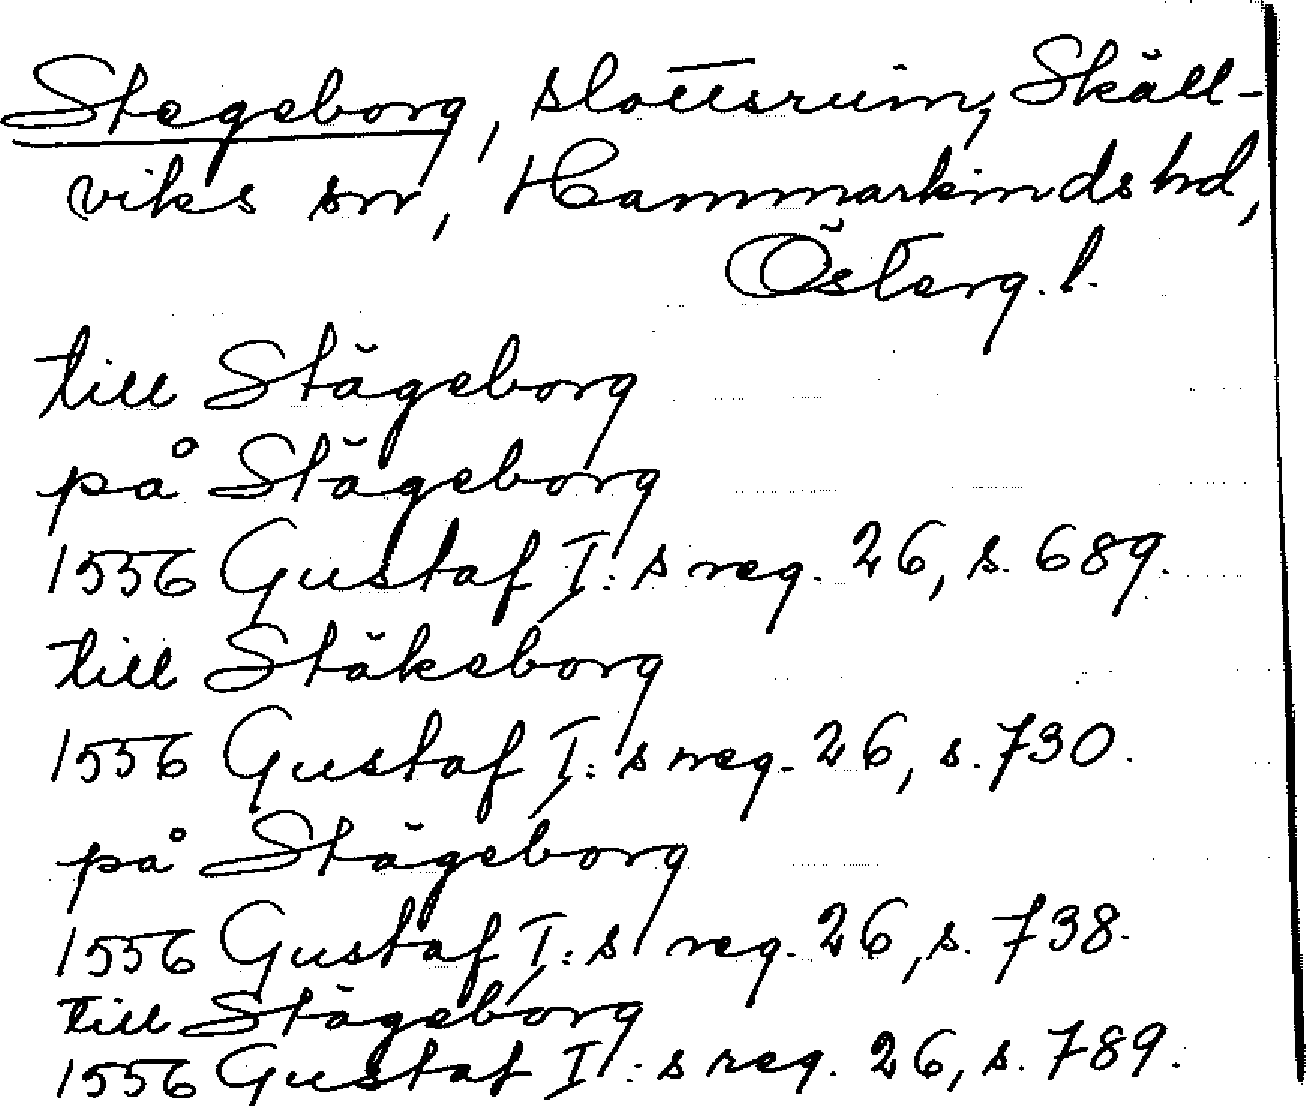 Stegeborg, slottsruin, Skäll-
viks sn, Hammarkinds hd,
Österg. l.
till Stägeborg
på Stägeborg
1556 Gustaf I:s reg. 26, s. 689.
till Stäkeborg
1556 Gustaf I:s reg. 26, s. 730.
på Stägeborg
1556 Gustaf I:s reg. 26, s. 738.
till Stägeborg
1556 Gustaf I:s reg. 26, s. 789.